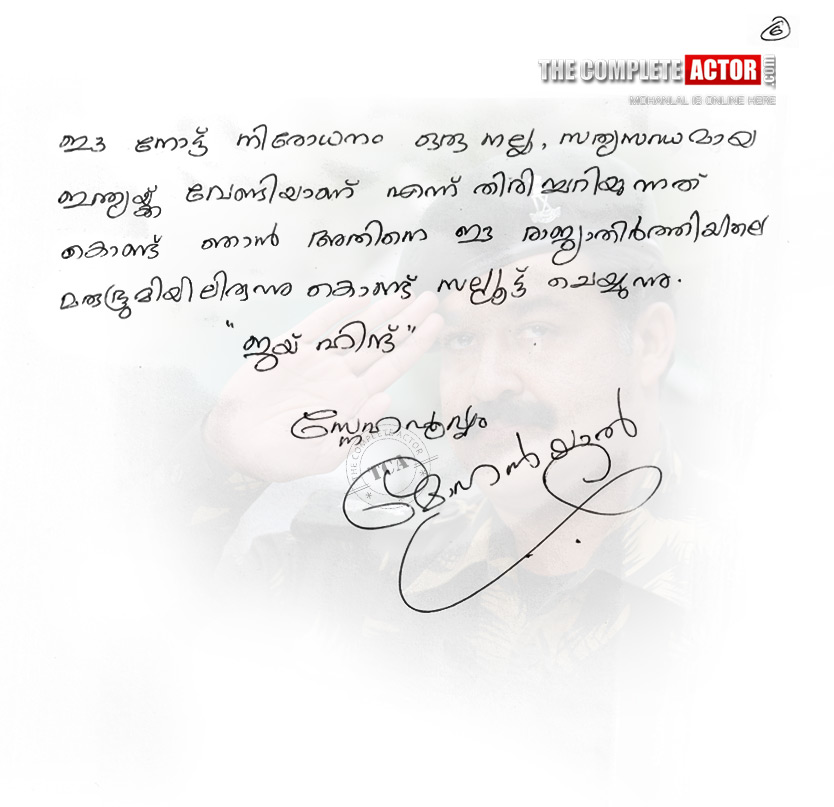 6
THE COMPLETE ACTOR .com
MOHANLAL IS ONLINE HERE
ഈ നോട്ട് നിരോധനം ഒരു നല്ല, സത്യസന്ധമായ
ഇന്ത്യയ്ക്ക് വേണ്ടിയാണ് എന്ന് തിരിച്ചറിയുന്നത്
കൊണ്ട് ഞാൻ അതിനെ ഈ രാജ്യാതിർത്തിയിലെ
മരുഭൂമിയിലിരുന്നു കൊണ്ട് സല്ല്യൂട്ട് ചെയ്യുന്നു.
"ജയ് ഹിന്ദ്"
സ്നേഹപൂർവ്വം
മോഹൻലാൽ
THE COMPLETE ACTOR
TCA